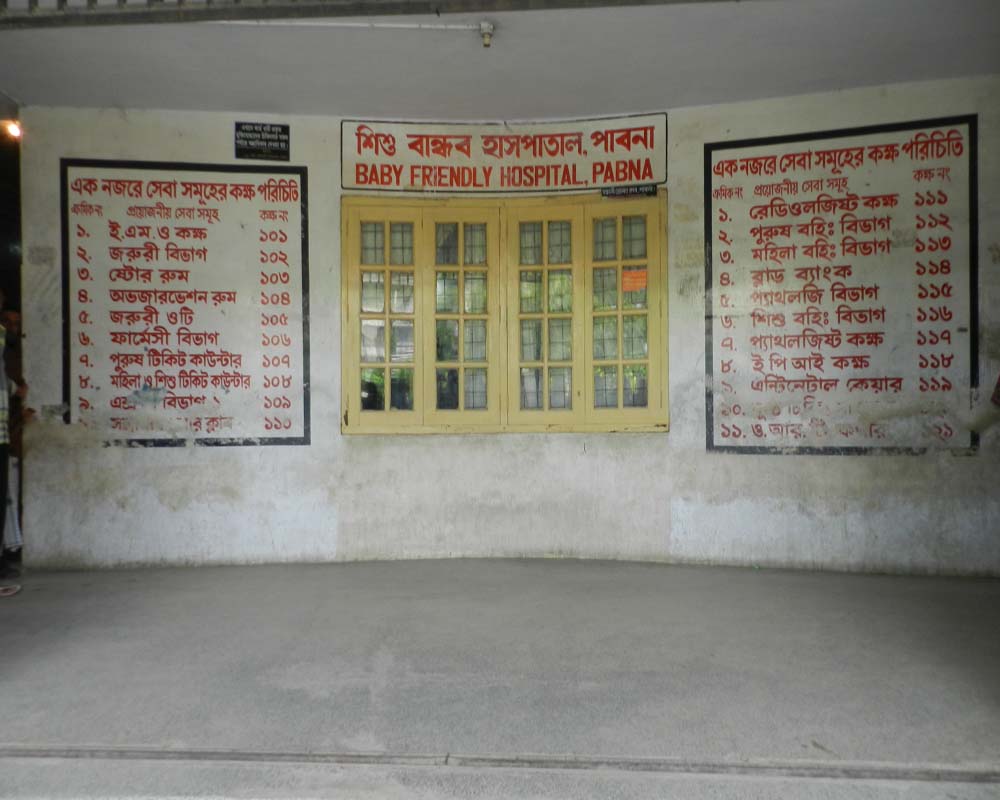 শিশু বান্ধব হাসপাতাল, পাবনা
BABY FRIENDLY HOSPITAL, PABNA
এক নজরে সেবা সমূহের কক্ষ পরিচিতি
ক্রমিক নং প্রয়োজনীয় সেবা সমূহ কক্ষ নং
১. ই.এম.ও কক্ষ ১০১
২. জরুরী বিভাগ ১০২
৩. ষ্টোর রুম ১০৩
৪. অভজারভেশন রুম ১০৪
৫. জরুরী ওটি ১০৫
৬. ফার্মেসী বিভাগ ১০৬
৭. পুরুষ টিকিট কাউন্টার ১০৭
৮. মহিলা ও শিশু টিকিট কাউন্টার ১০৮
৯. বিভাগ ১০৯
১১০
এক নজরে সেবা সমূহের কক্ষ পরিচিতি
ক্রমিক নং প্রয়োজনীয় সেবা সমূহ কক্ষ নং
১. রেডিওলজিষ্ট কক্ষ ১১১
২. পুরুষ বহিঃ বিভাগ ১১২
৩. মহিলা বহিঃ বিভাগ ১১৩
৪. ব্লাড ব্যাংক ১১৪
৫. প্যাথলজি বিভাগ ১১৫
৬. শিশু বহিঃ বিভাগ ১১৬
৭. প্যাথলজিষ্ট কক্ষ ১১৭
৮. ই পি আই কক্ষ ১১৮
এন্টিনেটাল কেয়ার ১১৯
১০.
১১. ও. আর. টি